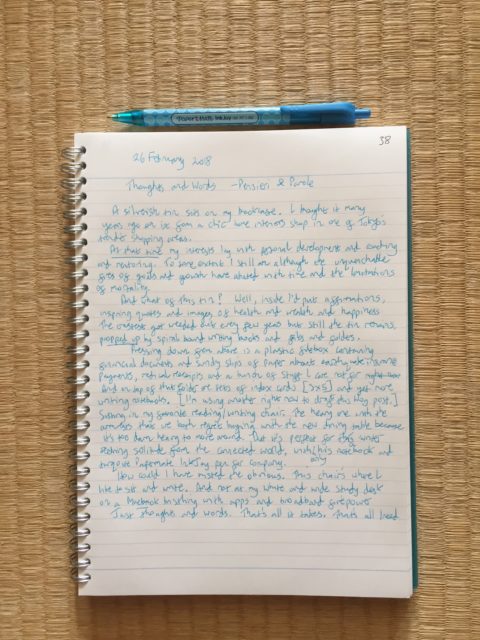 PaperMate InkJoy
38
26 February 2018
Thoughts and Words - Pensieri & Parole
A silverish tin sits on my bookcase. I bought it many
years ago on be from a chic home interiors shop in one of Tokyo's
trendier shopping areas.
At that time my interests lay with personal development and coaching
and mentoring. To some extent I still am although the unquenchable
fires of goals and growth have abated with time and the limitations
of mortality.
And what of this tin? Well, inside I'd put affirmations,
inspiring quotes and images of health and wealth and happiness
The contents get weeded out every few years but still the tin remains,
propped up by spiral bound writing books and and guides.
Pressing down from above is a plastic filebox containing
financial documents and sundry slips of paper about
payments, and a bunch of stuff I care not for right now
And on top of that or sets of index cards [3x5] and yet more
writing notebooks. [I'm using another right now to draft this blog post.]
Sitting in my favorite reading/writing chair. The heavy one with the
armrests that we both regret buying with the new dining table because
it's too damn heavy to move around. But it's perfect for this writer
seeking solitude from the connected world, with this notebook and
only
turquoise Papermate InkJoy pen for company.
How could I have missed the obvious. This chair's where I
like to sit and write. And not at my white and wide study desk
on a Macbook bristling with apps and broadband firepower
Just thoughts and words. That's all it takes. That's all I need.